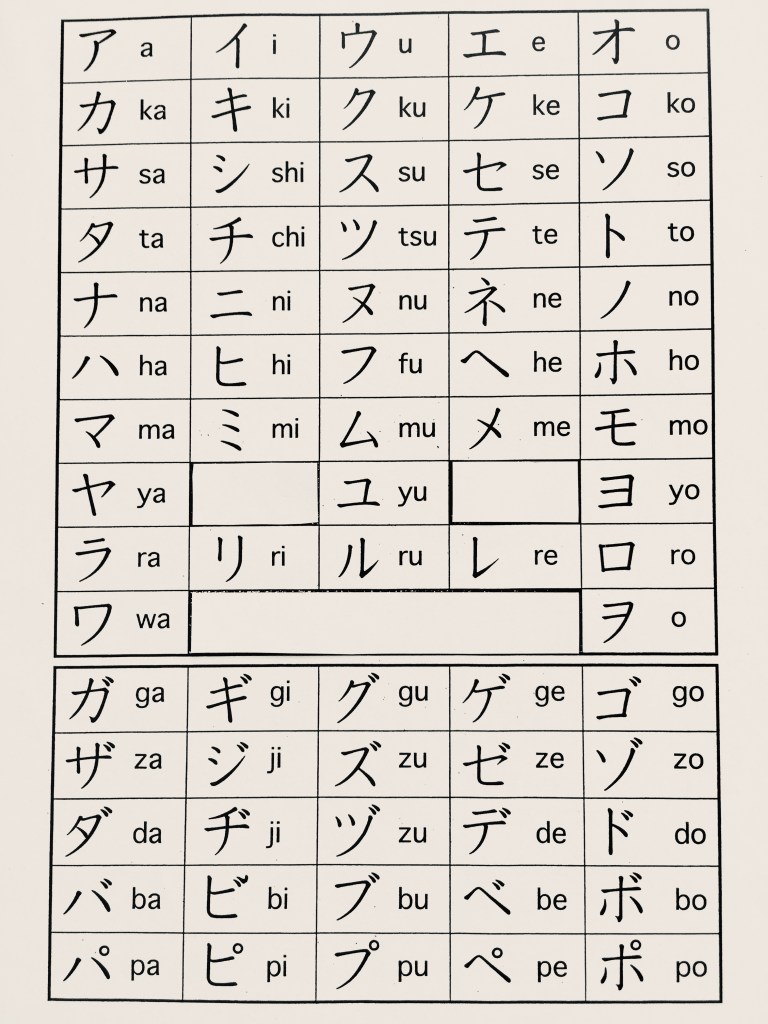 ア a イ i ウ u エ e オ o
カ ka キ ki ク ku ケ ke コ ko
サ sa シ shi ス su セ se ソ so
タ ta チ chi ツ tsu テ te ト to
ナ na ニ ni ヌ nu ネ ne ノ no
ハ ha ヒ hi フ fu ヘ he ホ ho
マ ma ミ mi ム mu メ me モ mo
ヤ ya ユ yu ヨ yo
ラ ra リ ri ル ru レ re ロ ro
ワ wa ヲ o
ガ ga ギ gi グ gu ゲ ge ゴ go
ザ za ジ ji ズ zu ゼ ze ゾ zo
ダ da ヂ ji ヅ zu デ de ド do
バ ba ビ bi ブ bu ベ be ボ bo
パ pa ピ pi プ pu ペ pe ポ po